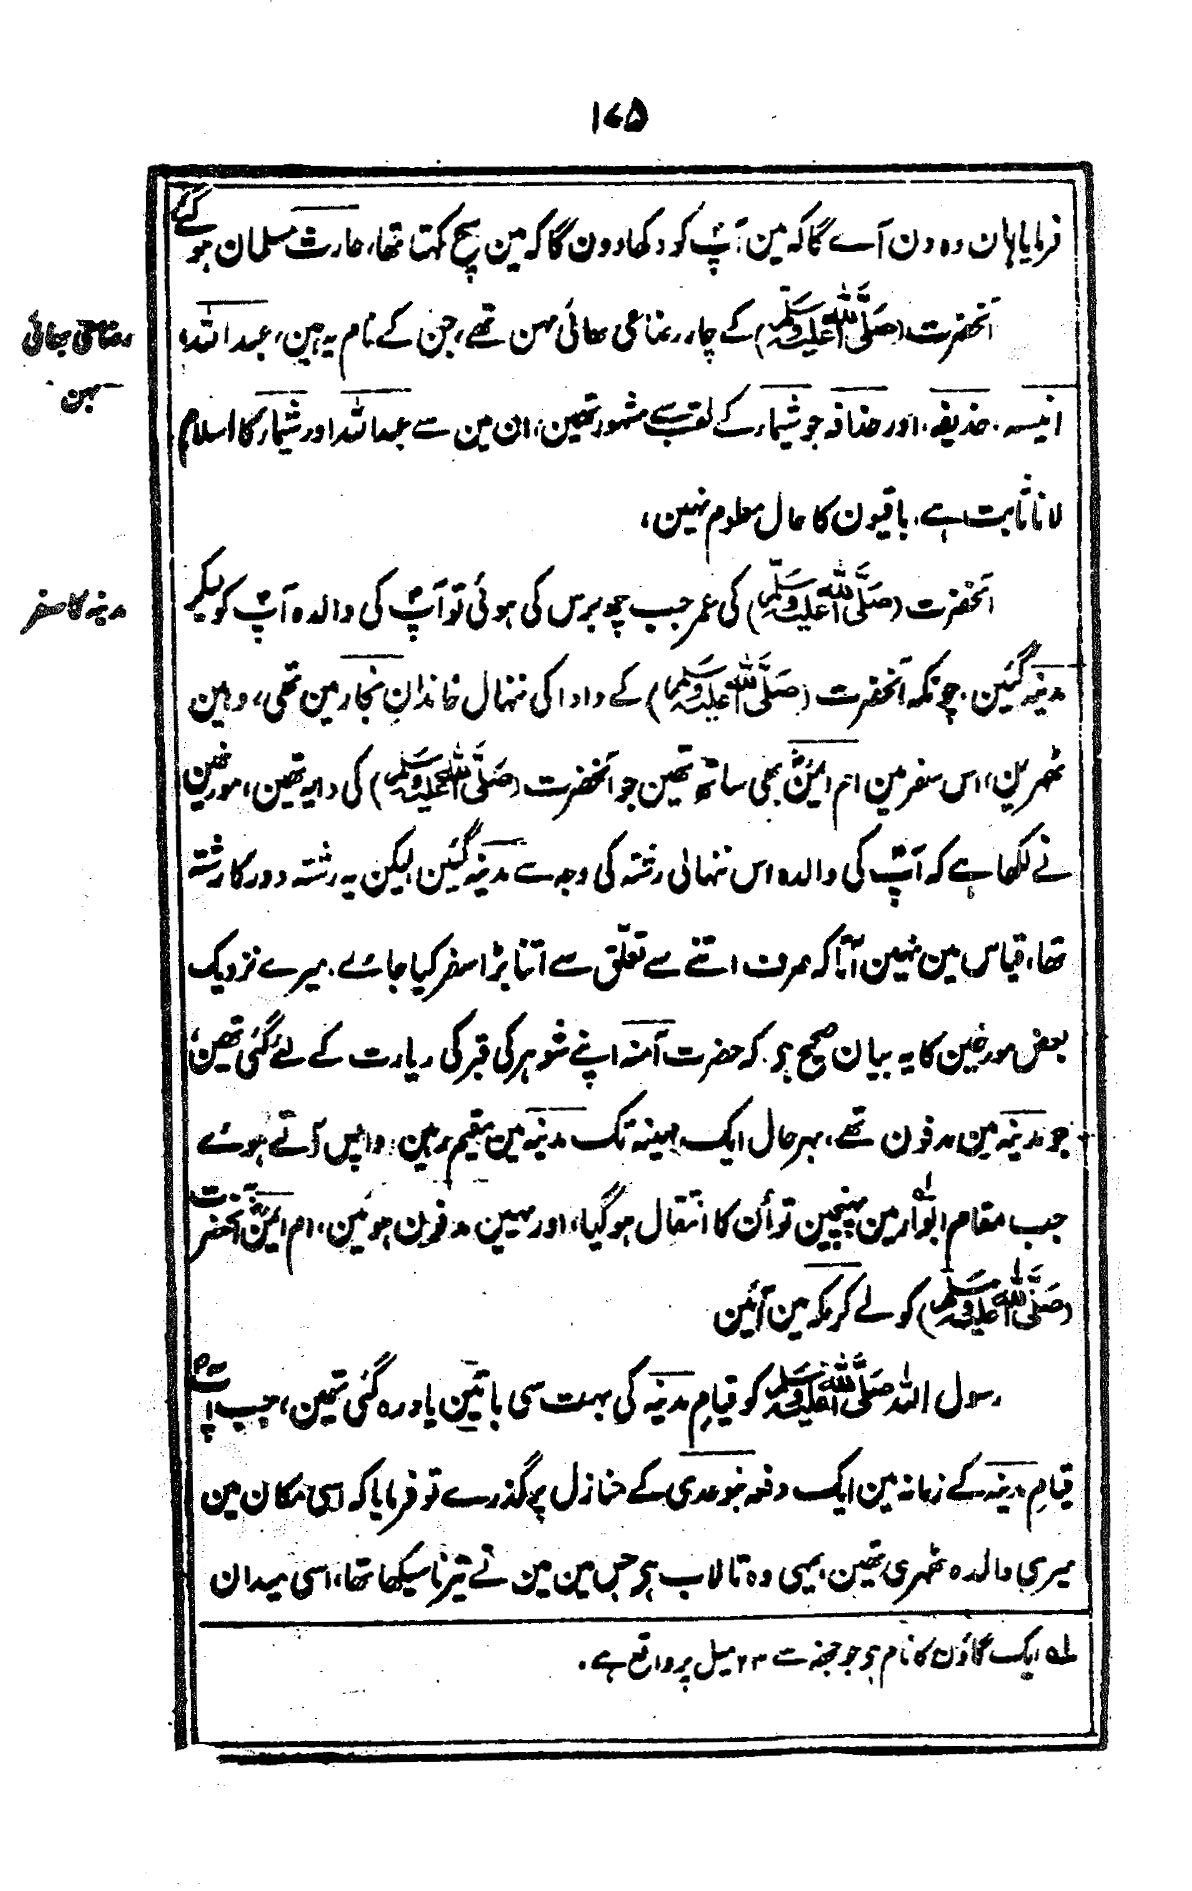 ۱۷۵
فرمایا ہان وہ دن آے گا کہ مین آپ کو دکھا دون گا کہ مین سچ کہتا تھا، حارث مسلمان ہو گئے
آنحضرت (صلی اللہ علیہ وسلم) کے چار رضاعی بھائی بہن تھے، جن کے نام یہ ہین، عبد اللہ،
رضاعی بھائی
بہن
انیسہ، حذیفہ، اور حذافہ جو شیماء کے لقب سے مشہور تھین، ان مین سے عبد اللہ اور شیماء کا اسلام
لانا ثابت ہے، باقیون کا حال معلوم نہین،
آنحضرت (صلی اللہ علیہ وسلم) کی عمر جب چھ برس کی ہوئی تو آپؐ کی والدہ آپؐ کو لیکر
مدینہ کا سفر
مدینہ گئین، چونکہ آنحضرت (صلی اللہ علیہ وسلم) کے دادا کی ننہال خاندانِ نجار مین تھی، وہین
ٹھہرین، اس سفر مین ام ایمنؓ بھی ساتھ تھین جو آنحضرت (صلی اللہ علیہ وسلم) کی دایہ تھین، مورخین
نے لکھا ہے کہ آپؐ کی والدہ اس ننہالی رشتہ کی وجہ سے مدینہ گئین لیکن یہ رشتہ دور کا رشتہ
تھا، قیاس مین نہین آتا کہ صرف اتنے سے تعلق سے اتنا بڑا سفر کیا جائے، میرے نزدیک
بعض مورخین کا یہ بیان صحیح ہی، کہ حضرت آمنہ اپنے شوہر کی قبر کی زیارت کے لئے گئی تھین،
جو مدینہ مین مدفون تھے، بہر حال ایک مہینہ تک مدینہ مین مقیم رہین، واپس آتے ہوئے
جب مقام ابواءلہ مین پہنچین تو اُن کا انتقال ہو گیا، اور یہین مدفون ہوئین، ام ایمنؓ آنحضرت
(صلی اللہ علیہ وسلم) کو لے کر مکہ مین آئین
رسول اللہ صلی اللہ علیہ وسلم کو قیامِ مدینہ کی بہت سی باتین یاد رہ گئی تھین، جب آپؐ
قیامِ مدینہ کے زمانہ مین ایک دفعہ بنو عدی کے منازل پر گذرے تو فرمایا کہ اسی مکان مین
میری والدہ ٹھہری تھین، یہی وہ تالاب ہی جس مین مین نے تیرنا سیکھا تھا، اسی میدان
لہ ایک گاؤن کا نام ہی جو جحفہ سے ۲۳ میل پر واقع ہے.